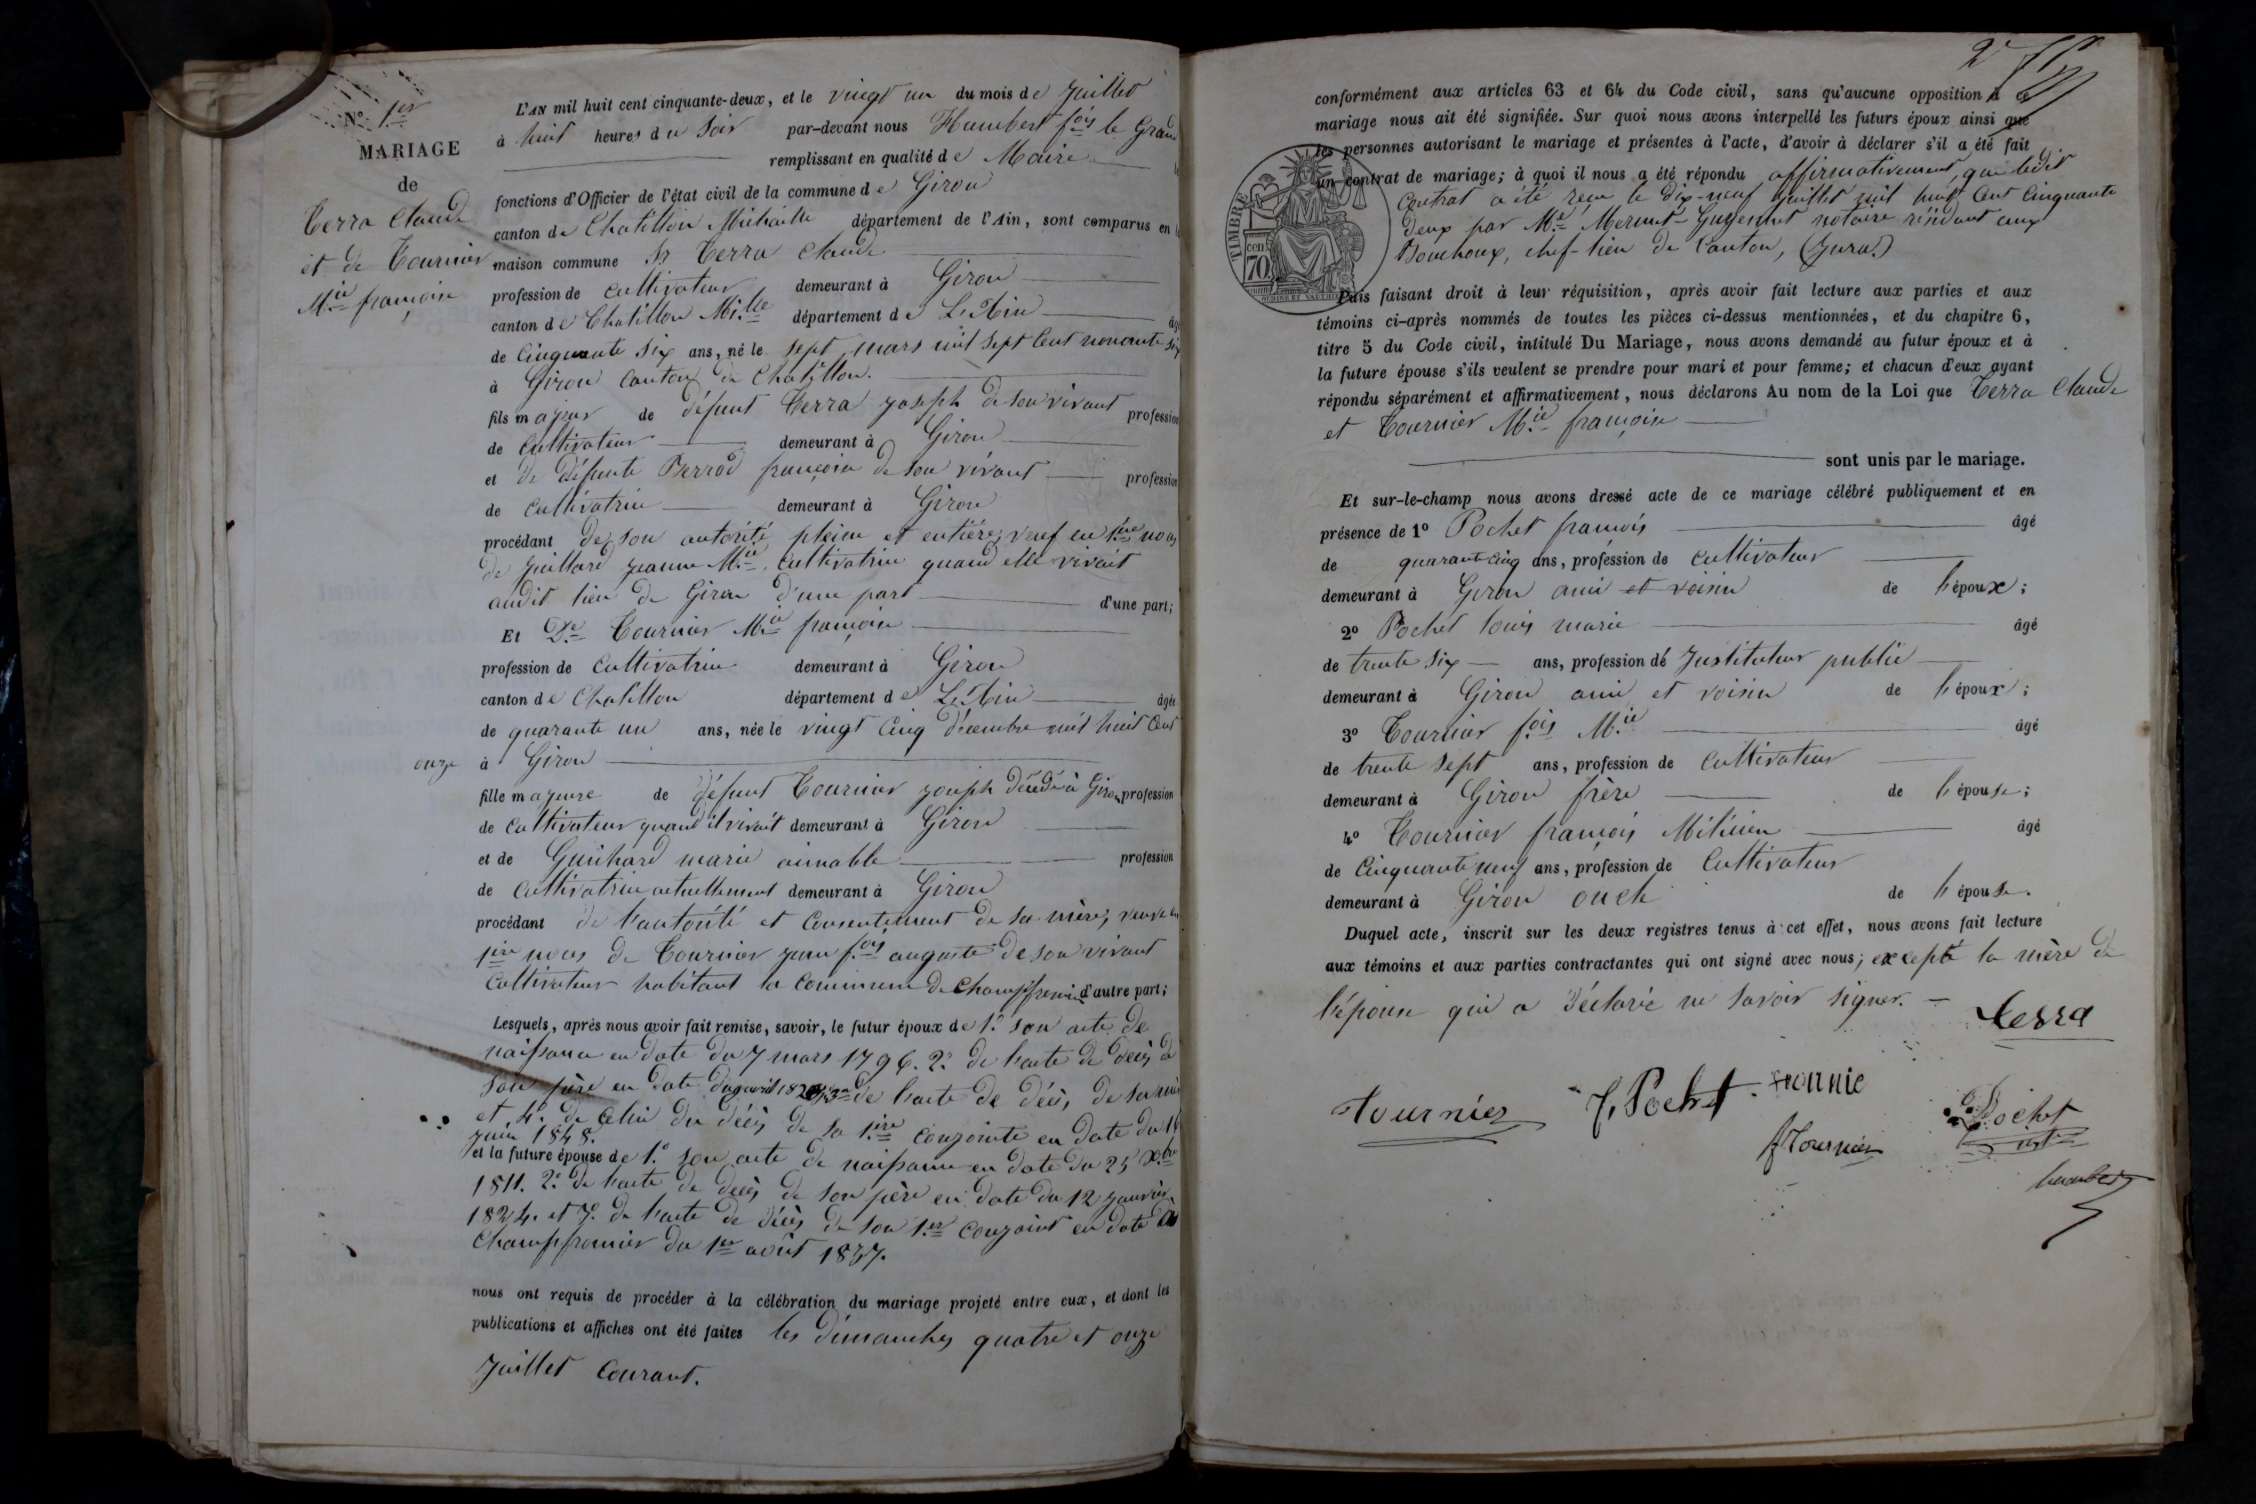 N° 1er
MARIAGE
de
Terra Claude
et de Tournier
Mie françoise
L'AN mil huit cent cinquante-deux, et le vingt un du mois de Juillet
à huit heures du Soir par-devant nous Humbert fois le Grand
remplissant en qualité de Maire
fonctions d'Officier de l'état civil de la commune de Giron
canton de Chatillon Michaille département de l'Ain, sont comparus en
maison commune Sr Terra Claude
profession de Cultivateur demeurant à Giron
canton de Chatillon Mille département de L'Ain âgé
de Cinquante Six ans, né le sept mars mil sept Cent nonante six
à Giron Canton de Chatillon.
fils majeur de défunt Terra Joseph de son vivant profession
de Cultivateur demeurant à Giron
et de défunte Perrod françoise de son vivant profession
de Cultivatrice demeurant à Giron
procédant de son autorité pleine et entière; veuf en 1ère noces
de Juillard Jeanne Mie, Cultivatrice quand elle vivait
audit lieu de Giron d'une part d'une part;
Et De Tournier Mie françoise
profession de Cultivatrice demeurant à Giron
canton de Chatillon département de L'Ain âgée
de quarante un ans, née le vingt Cinq décembre mil huit Cent
onze à Giron
fille majeure de défunt Tournier Joseph décédé à Giron, profession
de Cultivateur quand il vivait demeurant à Giron
et de Guichard marie aimable profession
de Cultivatrice actuellement demeurant à Giron
procédant de l'autorité et Consentement de sa mère; veuve en
1ère noces de Tournier Jean fois auguste de son vivant
Cultivateur habitant la Commune de Champfromier d'autre part;
Lesquels, après nous avoir fait remise, savoir, le futur époux de 1° son acte de
naissance en date du 7 mars 1796. 2° de l'acte de décès de
son père en date du avril 3° de l'acte de décès de sa mère
et 4° de Celui du décès de sa 1ère Conjointe en date du 16
Juin 1848.
et la future épouse de 1° son acte de naissance en date du 25 Xbre
1811. 2° de l'acte de décès de son père en date du 12 Janvier
1824. et 3° de l'acte de décès de son 1er Conjoint en date de
Champfromier du 1er août 1837.
nous ont requis de procéder à la célébration du mariage projeté entre eux, et dont les
publications et affiches ont été faites les dimanches quatre et onze
Juillet Courant.
conformément aux articles 63 et 64 du Code civil, sans qu'aucune opposition à ce
mariage nous ait été signifiée. Sur quoi nous avons interpellé les futurs époux ainsi que
les personnes autorisant le mariage et présentes à l'acte, d'avoir à déclarer s'il a été fait
un contrat de mariage; à quoi il nous a été répondu affirmativement, que ledit
Contrat a été reçu le dix-neuf Juillet mil huit Cent Cinquante
deux par Me Mermet-Guyennet notaire résidant aux
Bouchoux, chef-lieu de Canton, (Jura.)
TIMBRE
cen
70
Puis faisant droit à leur réquisition, après avoir fait lecture aux parties et aux
témoins ci-après nommés de toutes les pièces ci-dessus mentionnées, et du chapitre 6,
titre 5 du Code civil, intitulé Du Mariage, nous avons demandé au futur époux et à
la future épouse s'ils veulent se prendre pour mari et pour femme; et chacun d'eux ayant
répondu séparément et affirmativement, nous déclarons Au nom de la Loi que Terra Claude
et Tournier Mie françoise
sont unis par le mariage.
Et sur-le-champ nous avons dressé acte de ce mariage célébré publiquement et en
présence de 1° Pochet françois âgé
de quarante cinq ans, profession de Cultivateur
demeurant à Giron ami et voisin de l'époux;
2° Pochet Louis marie âgé
de trente six ans, profession de Instituteur public
demeurant à Giron ami et voisin de l'époux;
3° Tournier fois Mie âgé
de trente sept ans, profession de Cultivateur
demeurant à Giron frère de l'épouse;
4° Tournier françois Mitican âgé
de Cinquante neuf ans, profession de Cultivateur
demeurant à Giron oncle de l'épouse.
Duquel acte, inscrit sur les deux registres tenus à cet effet, nous avons fait lecture
aux témoins et aux parties contractantes qui ont signé avec nous; excepté la mère de
l'épouse qui a déclaré ne savoir signer.
Terra
Tournier f. Pochet tournie
f Tournier Pochet
humbert